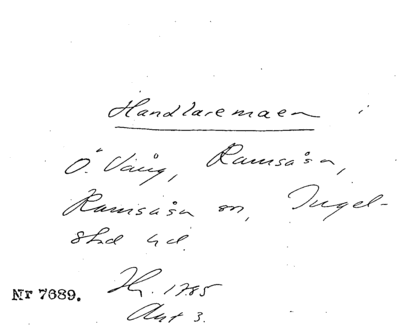 Handlaremaen
Ö. Vång, Ramsåsa,
Ramsåsa sn, Ingel-
stad hd.
Nr 7689. Hy. 1785
Akt 3.